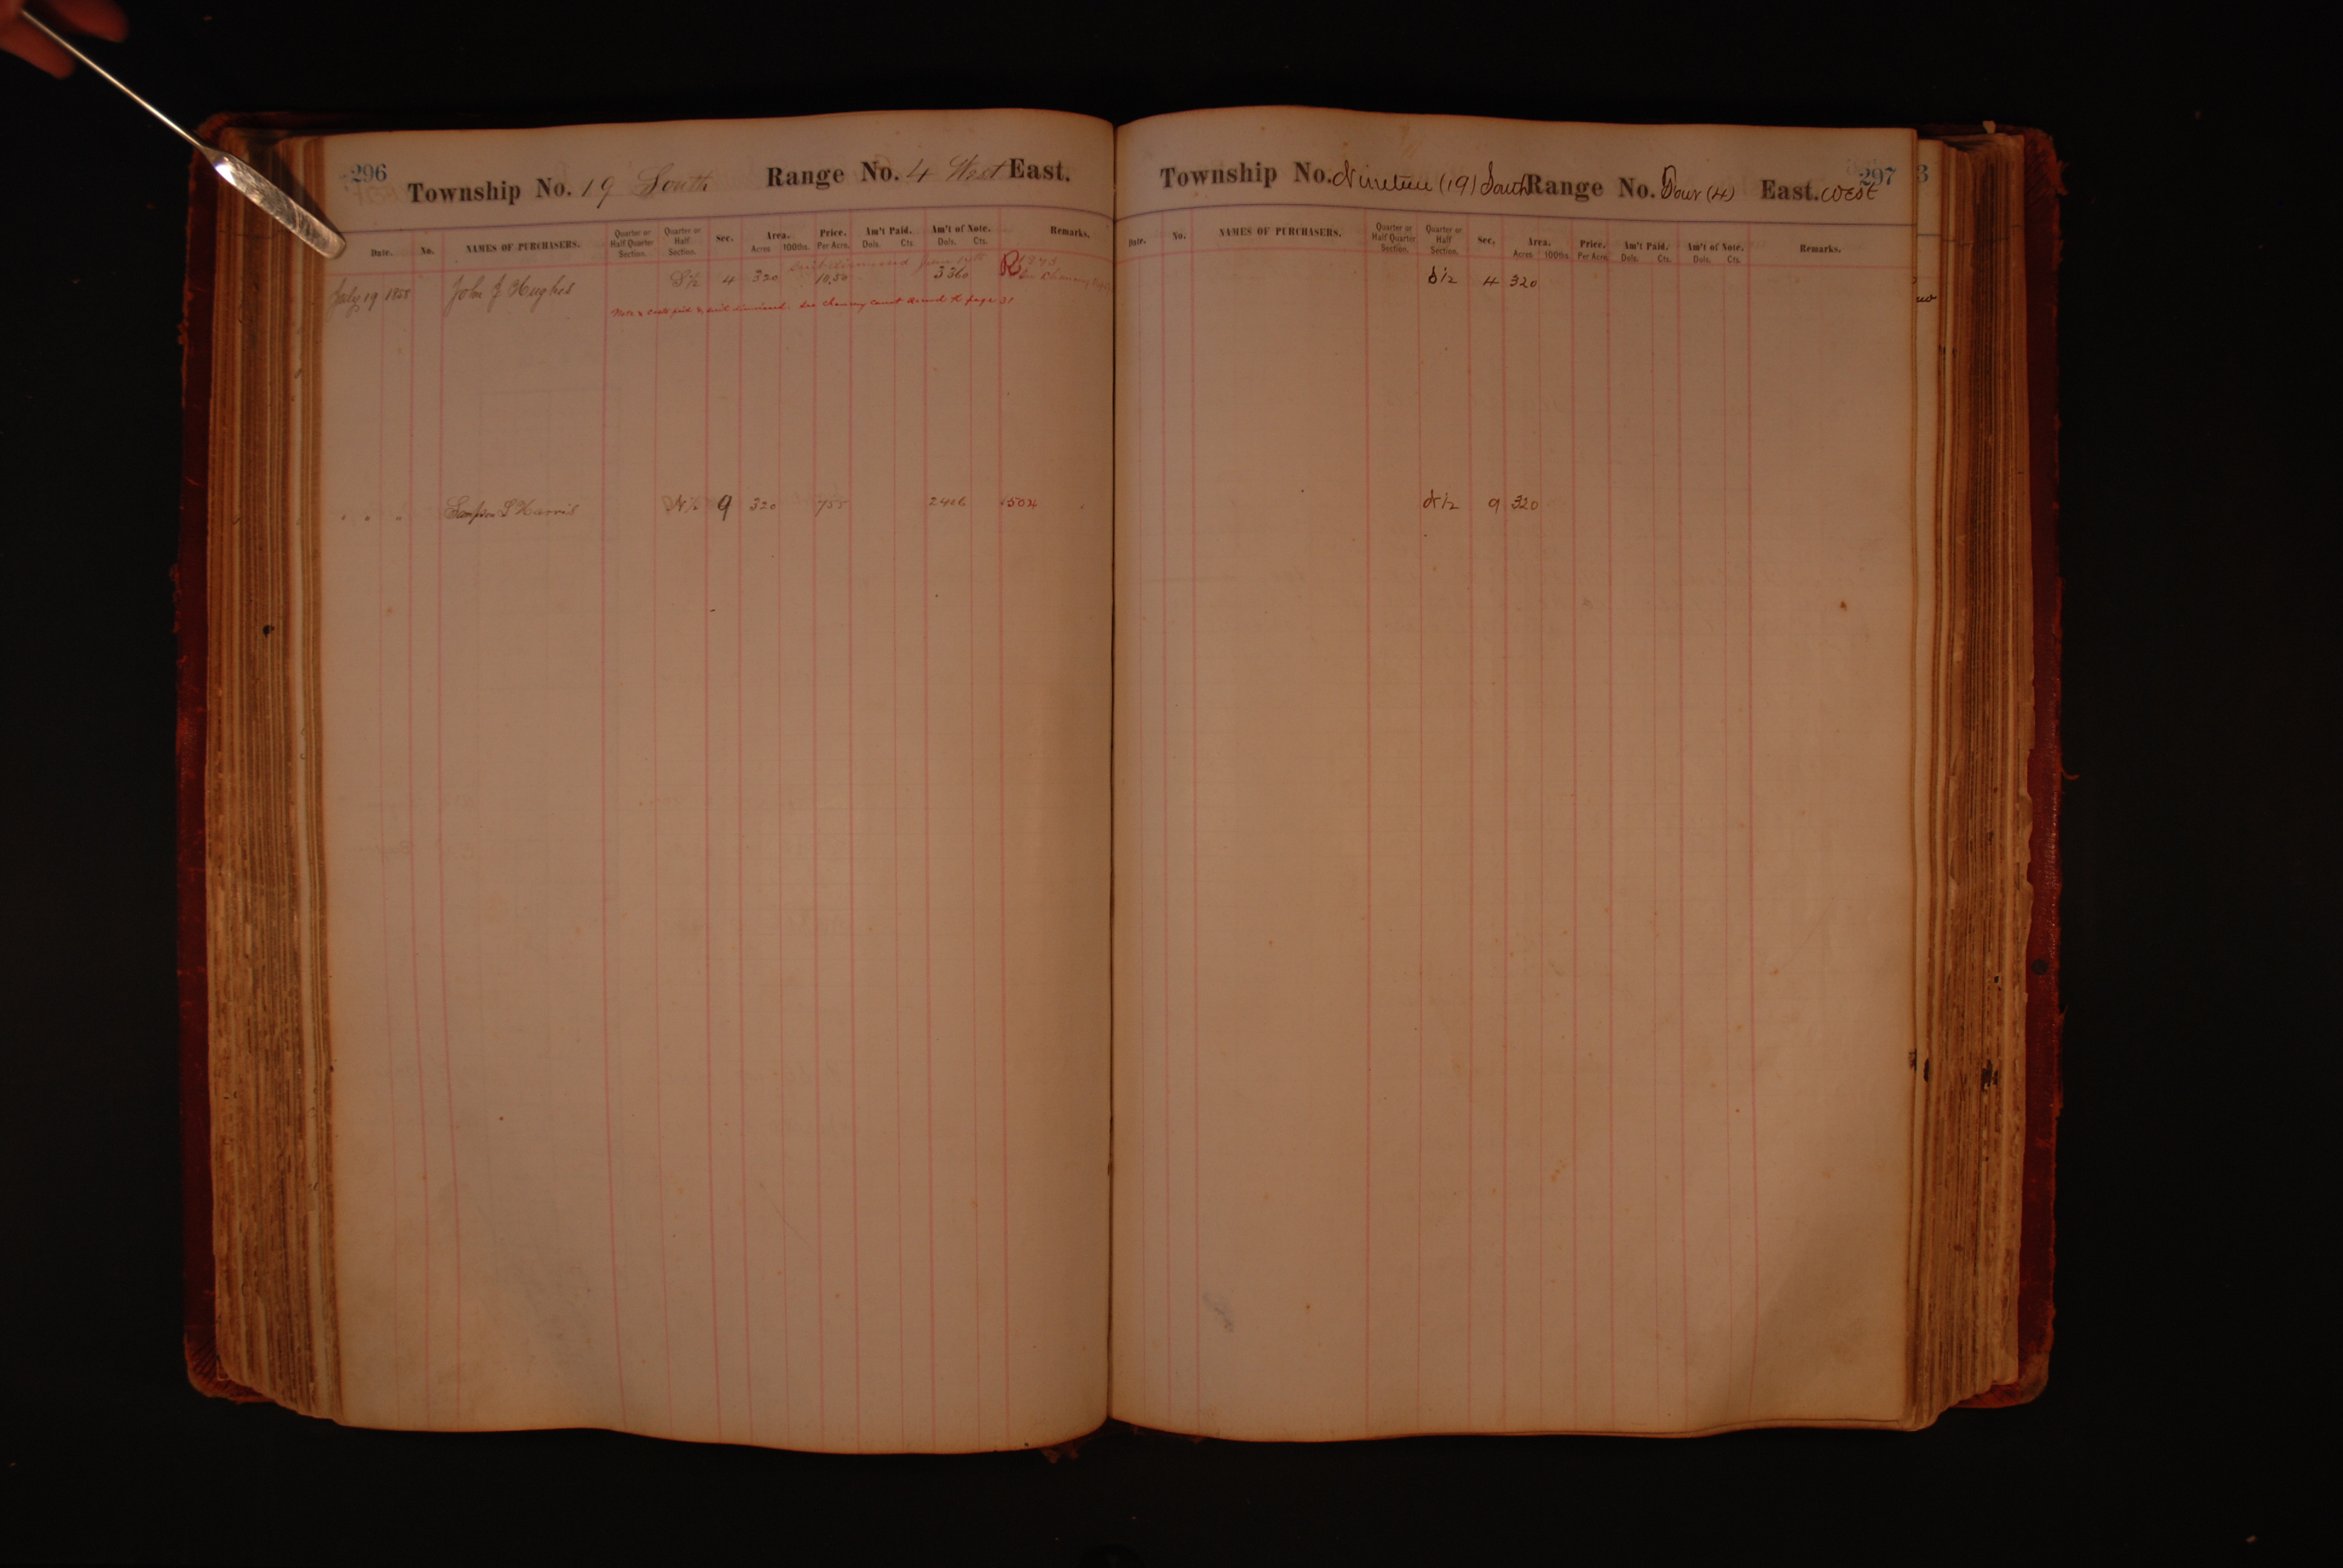 296
Township No. 19 South Range No. 4 West East.
Date. No. NAMES OF PURCHASERS. Quarter or Half Quarter Section. Quarter or Half Section. Sec. Area. Acres 100ths. Price. Per Acre. Am't Paid. Dols. Cts. Am't of Note. Dols. Cts. Remarks.
Suit dismissed June 14th 1943
July 19 1858 John J Hughes S½ 4 320 10.50 3360 R See Chancery
Note & Costs paid & suit dismissed. See Chancery Court Record page 31
" " " Sampson S Harris N½ 9 320 755 2406 504
297
Township No. Nineteen (19) South Range No. Four (4) East. West
Date. No. NAMES OF PURCHASERS. Quarter or Half Quarter Section. Quarter or Half Section. Sec. Area. Acres 100ths. Price. Per Acre. Am't Paid. Dols. Cts. Am't of Note. Dols. Cts. Remarks.
S½ 4 320
N½ 9 320
3